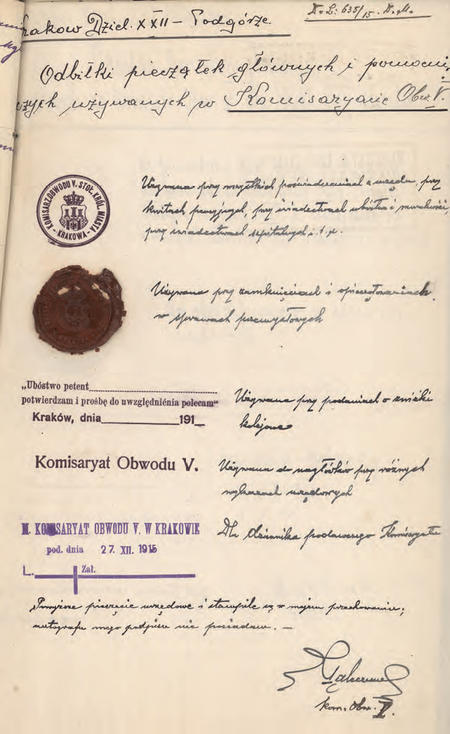 Krakow Dziel. XXII – Podgórze
N. L: 635/15. N. M.
Odbitki pieczątek głównych i pomocni-
czych używanych w Komisaryacie Obw. V.
KOMISARZ OBWODU V. STOŁ. KRÓL. MIASTA
KRAKOWA
Używana przy wszystkich poświadczeniach z urzędu, przy
kwitach pensyjnych, przy świadectwach ubóstwa i moralności,
przy świadectwach szpitalnych i t. p.
Używana przy zamknięciach i opieczętowaniach
w sprawach przemysłowych
„Ubóstwo petent
potwierdzam i prośbę do uwzględnienia polecam"
Kraków, dnia 191
Używana przy podaniach o zniżki
kolejowe
Komisaryat Obwodu V.
Używana do nagłówków przy różnych
wykazach urzędowych
M. KOMISARYAT OBWODU V. W KRAKOWIE
pod. dnia 27. XII. 1915
L. Zał.
Dla dziennika podawczego Komisaryatu
Powyższe pieczęcie urzędowe i stampile są w mojem przechowaniu;
autografu mego podpisu nie posiadam. —
kom. Obw. V